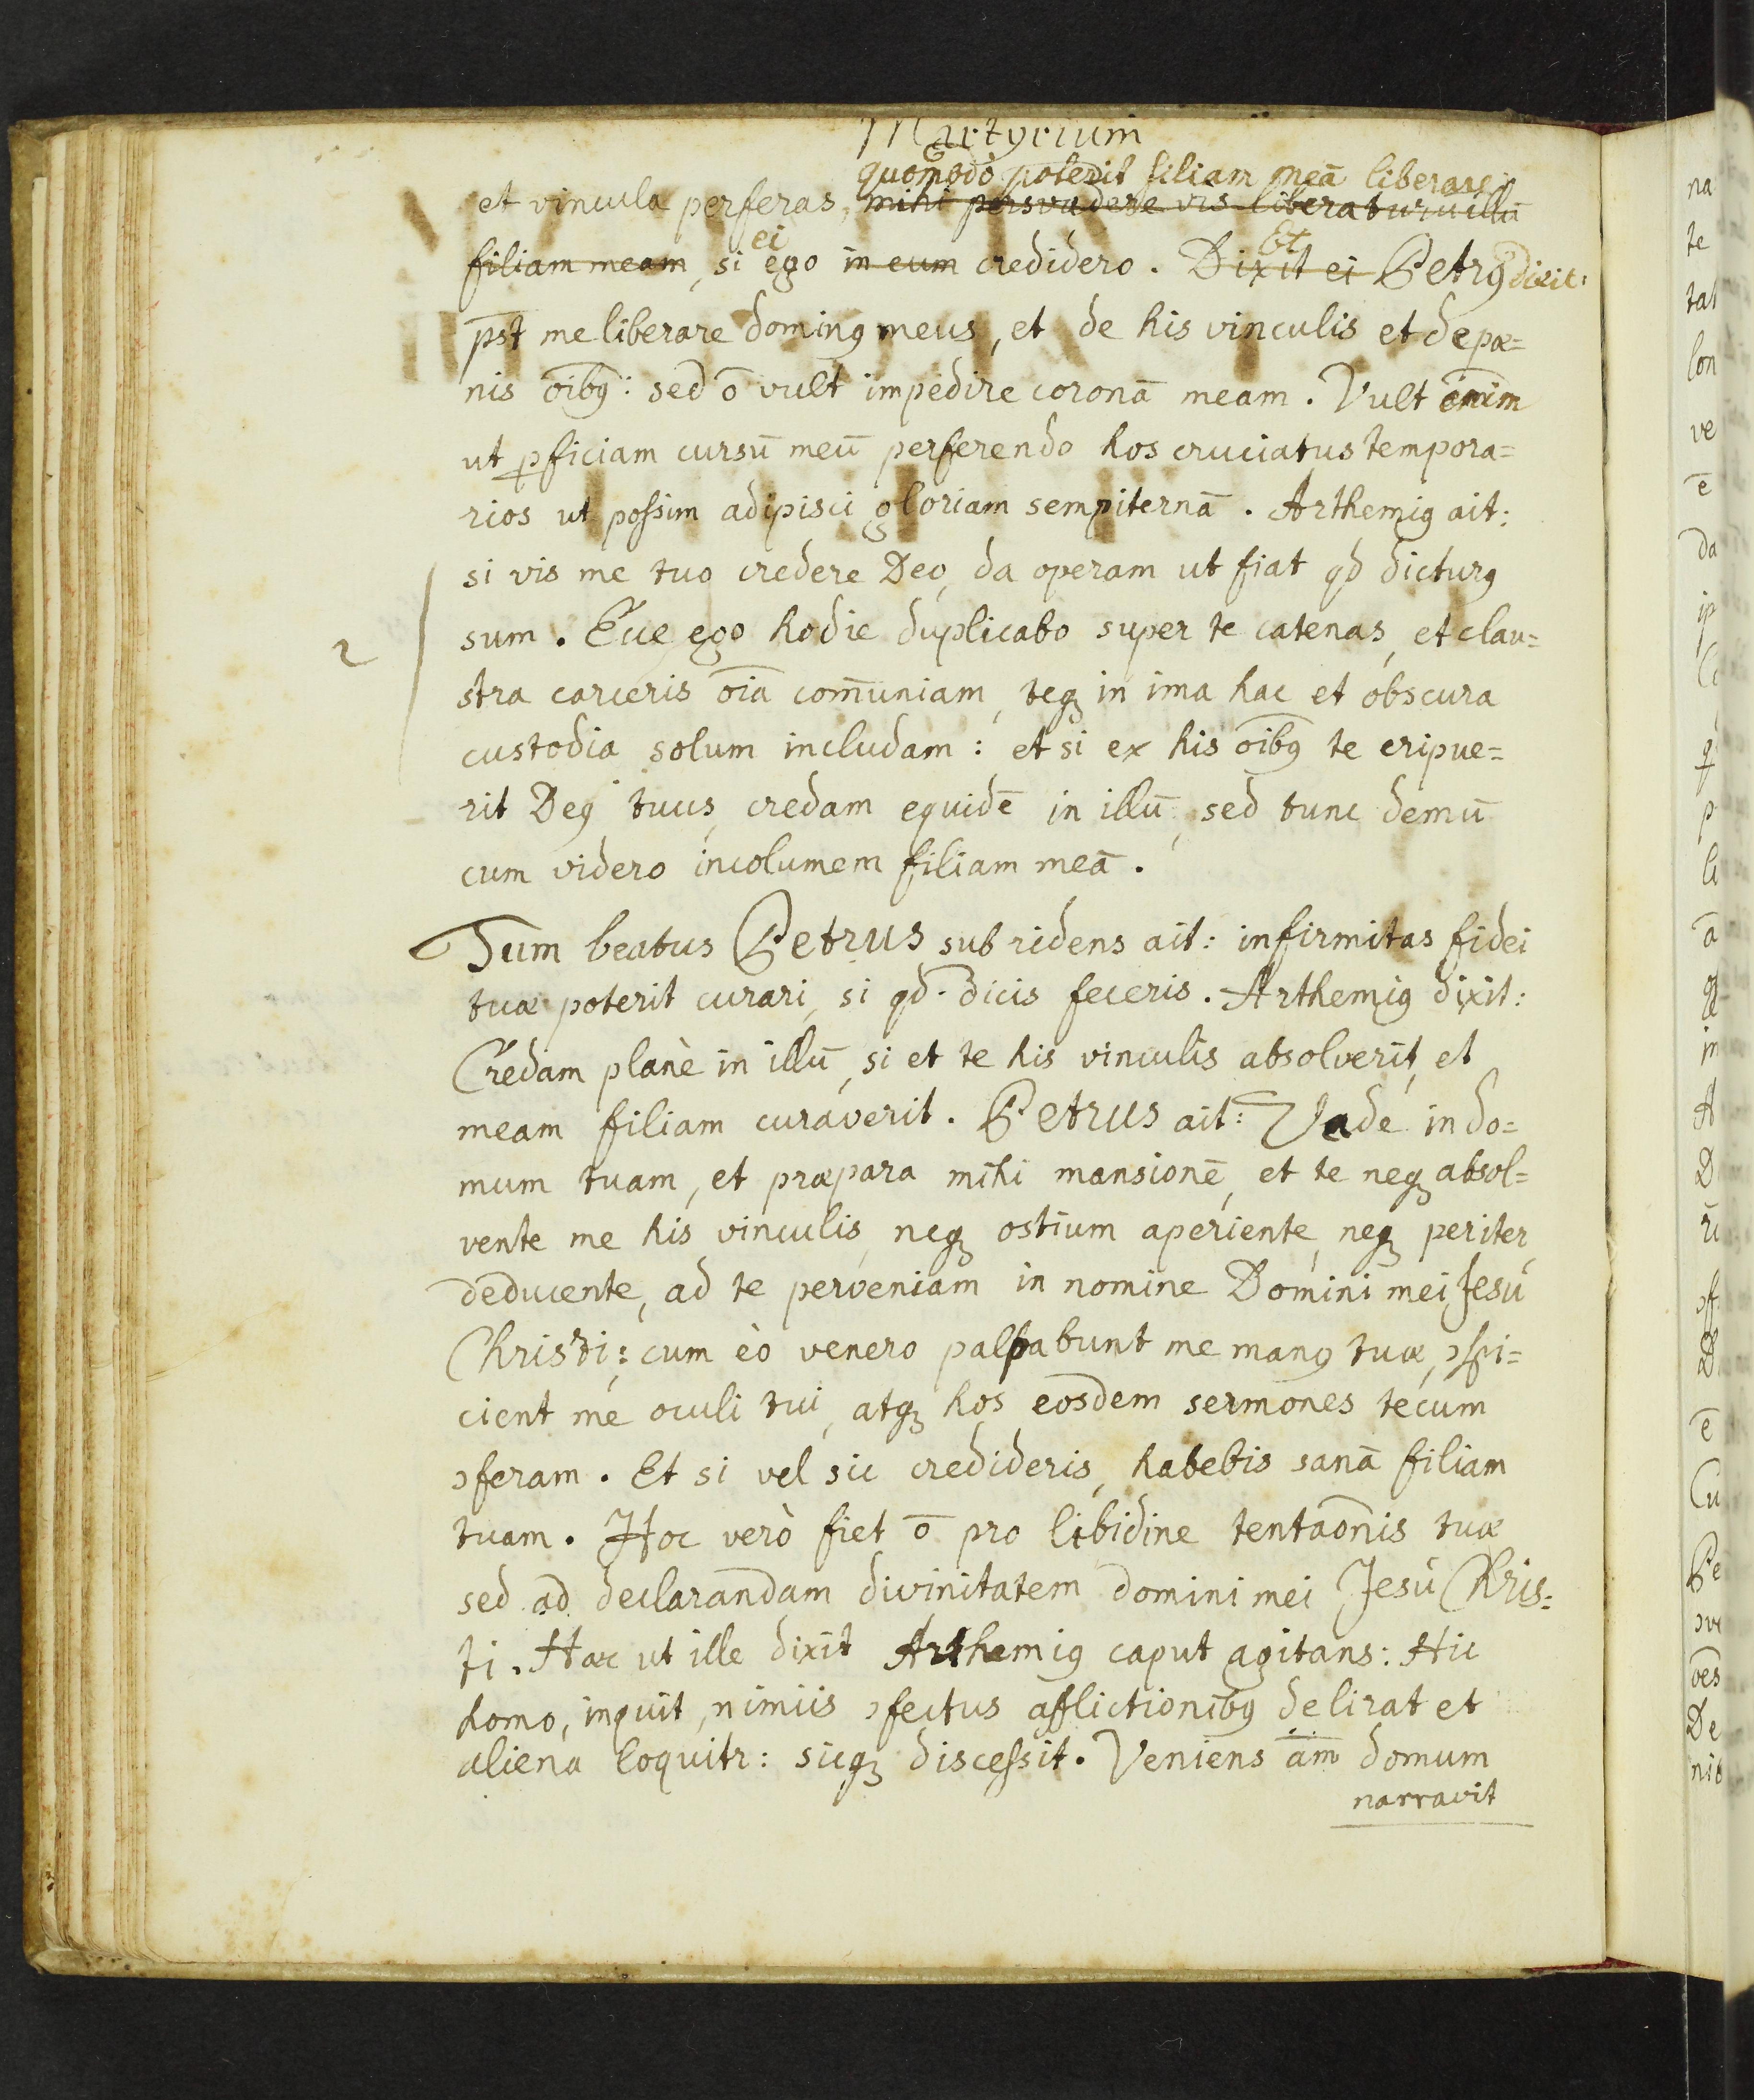 Martyrium
quomodò poterit filiam meā liberare
et vincula perferas, mihi persvadere vis liberaturū illū
ei Et
filiam meam, si ego in eum credidero. Dixit ei Petrꝰ dixit:
pōt me liberare dominꝰ meus, et de his vinculis et de pœ=
nis oībꝰ: sed ō vult impedire coronā meam. Vult enim
ut ꝑficiam cursū meū perferendo hos cruciatus tempora=
rios ut poſsim adipisci gloriam sempiternā. Arthemiꝰ ait:
si vis me tuo credere Deo, da operam ut fiat qd dicturꝰ
2 sum. Ecce ego hodie duplicabo super te catenas, et clau=
stra carceris oīa com̄uniam, teqꝫ in ima hac et obscura
custodia solum includam: et si ex his oībꝰ te eripue=
rit Deꝰ tuus, credam equidē in illū, sed tunc demū
cum videro incolumem filiam meā.
Tum beatus Petrus sub ridens ait: infirmitas fidei
tuæ poterit curari, si qd dicis feceris. Arthemiꝰ dixit:
Credam planè in illū, si et te his vinculis absolverit, et
meam filiam curaverit. Petrus ait: Vade in do=
mum tuam, et præpara mihi mansionē, et te neqꝫ absol=
vente me his vinculis, neqꝫ ostium aperiente, neqꝫ periter
deducente, ad te perveniam in nomine Domini mei Jesu
Christi: cum eò venero palpabunt me manꝰ tuæ, ɔspi=
cient me oculi tui, atqꝫ hos eosdem sermones tecum
ɔferam. Et si vel sic credideris, habebis sanā filiam
tuam. Hoc verò fiet ō pro libidine tentaōnis tuæ
sed ad declarandam divinitatem domini mei Jesu Chris=
ti. Hæc ut ille dixit Arthemiꝰ caput agitans: Hic
homo, inquit, nimiis ɔfectus afflictionibꝰ delirat et
aliena loquitr: sicqꝫ disceſsit. Veniens am̄ domum
narravit